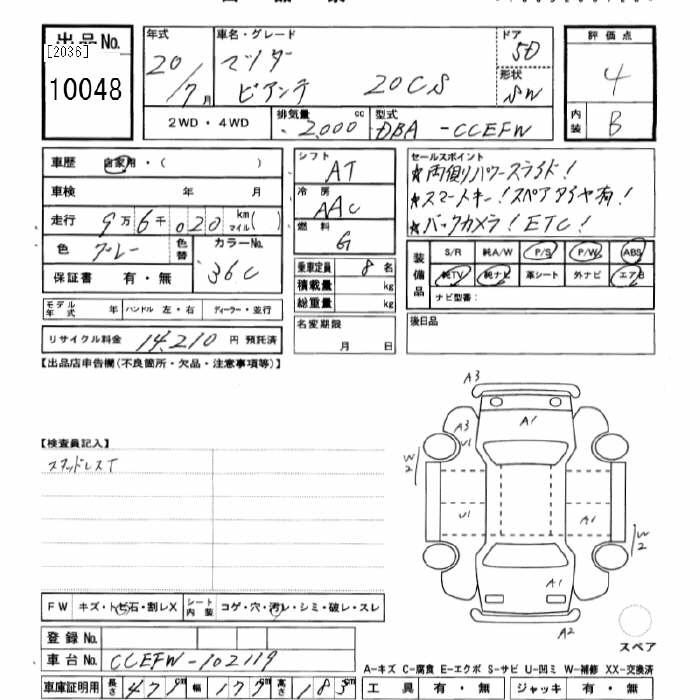 出品No.
[2036]
10048
年式
20/7月
車名・グレード
マツダ
ビアンテ 20CS
ドア
5D
形状
SW
評価点
4
内装
B
2WD・4WD
排気量 cc
2,000
型式
DBA-CCEFW
車歴 自家用・( )
車検 年 月
走行 9万6千020 km マイル( )
色 グレー 色替 カラーNo. 36C
保証書 有・無
モデル年式 年 ハンドル 左・右 ディーラー・並行
リサイクル料金 14,210 円 預託済
シフト
AT
冷房
AAC
燃料
G
乗車定員 8名
積載量 kg
総重量 kg
名変期限
月 日
セールスポイント
★両側パワースライド!
★スマートキー!スペアタイヤ有!
★バックカメラ!ETC!
装備品
S/R 純A/W P/S P/W ABS
純TV 純ナビ 革シート 外ナビ エアB
ナビ型番:
後日品
【出品店申告欄(不良箇所・欠品・注意事項等)】
【検査員記入】
スタッドレスT
A3
A1
A3
U1
W2
U1
A1
W2
A1
A2
スペア
FW キズ・トビ石・割レX シート内装 コゲ・穴・汚レ・シミ・破レ・スレ
登録No.
車台No. CCEFW-102119
A-キズ C-腐食 E-エクボ S-サビ U-凹ミ W-補修 XX-交換済
車庫証明用 長さ 471cm 幅 177cm 高さ 183cm
工具 有・無 ジャッキ 有・無